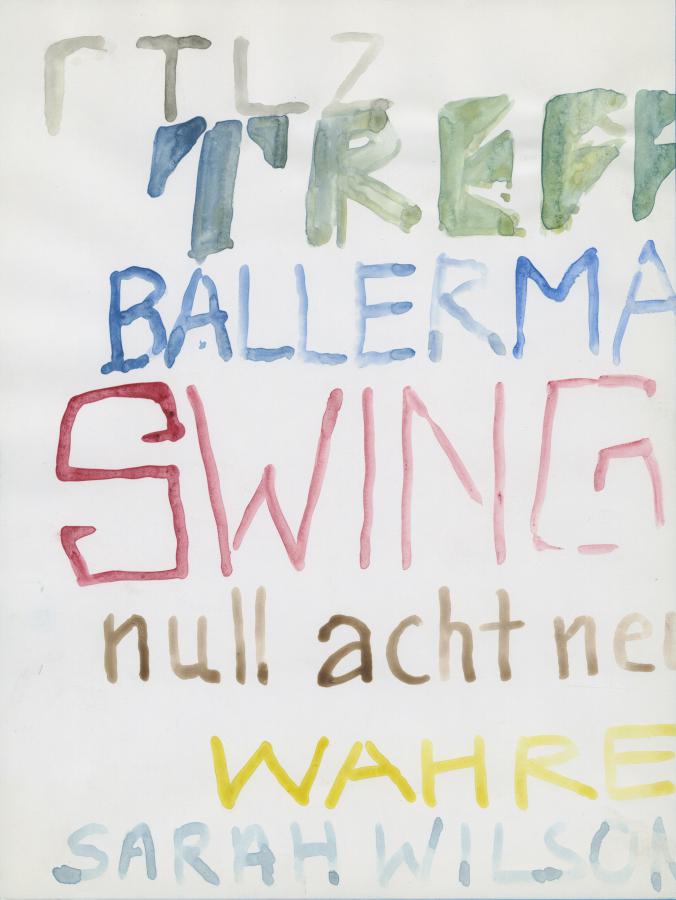 rTLZ
TREFF
BALLERMA
SWING
null acht neu
WAHRE
SARAH WILSON